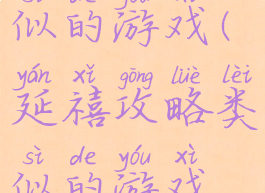 sì de yóu xì
似的游戏(
yán xǐ gōng lüè lèi
延禧攻略类
sì de yóu xì
似的游戏